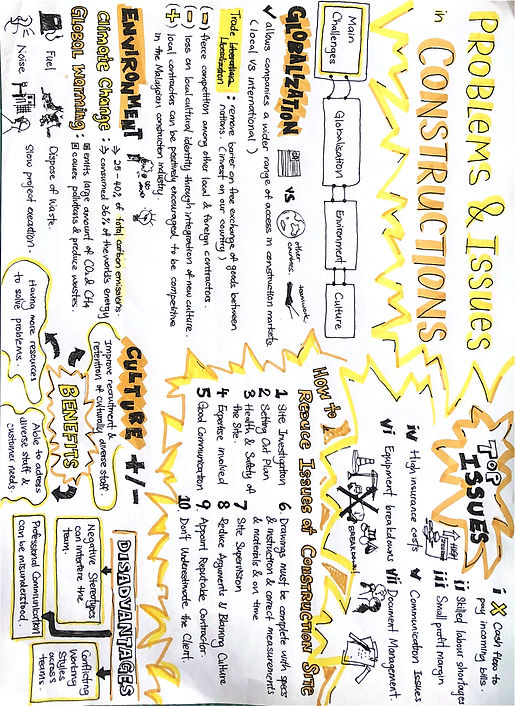 PROBLEMS & Issues
in CONSTRUCTIONS
Main Challenges
Globalisation
Environment
Culture
GLOBALIZATION
VS
other countries.
teamwork.
✓ allows companies a wider range of access in construction markets
( local vs international )
Trade Liberalization : remove barrier on free exchange of goods between
nations. ( invest on our country )
(-) fierce competition among other local & foreign contractors.
(-) loss on local cultural identity through integration of new culture.
(+) local contractors can be positively encouraged to be competitive
in the Malaysian construction industry.
ENVIRONMENT
Climate Change : → 25-40% of total carbon emissions.
→ consumed 36% of the world's energy
Global Warming : emits large amount of CO2 & CH4
causes pollutions & produce wastes.
Fuel
Dispose of Waste.
Noise
Slow project execution.
TOP ISSUES
HIGH
i X Cash flow to
pay incoming bills.
ii Skilled labour shortages
iii Small profit margin
iv High insurance costs
v Communication Issues
vi Equipment breakdowns
vii Document Management.
BREAKDOWN!
How to Reduce Issues at Construction Site
1 Site Investigation
2 Setting Out Plan
3 Health & Safety of
the Site.
4 Expertise involved
5 Good Communication
6. Drawings must be complete with specs
& instruction & correct measurements
& materials & on time
7 Site Supervision
8 Reduce Arguments & Blaming Culture
9 Appoint Reputable Contractor.
10 Don't Underestimate the Client
CULTURE +/-
Improve recruitment &
retention of culturally diverse staff
BENEFITS
Having more resources
to solve problems.
Able to address
diverse staff &
customer needs
DISADVANTAGES
Negative Stereotypes
can interfere the
team.
Professional Communication
can be misunderstood.
Conflicting
Working
Styles
across
teams.